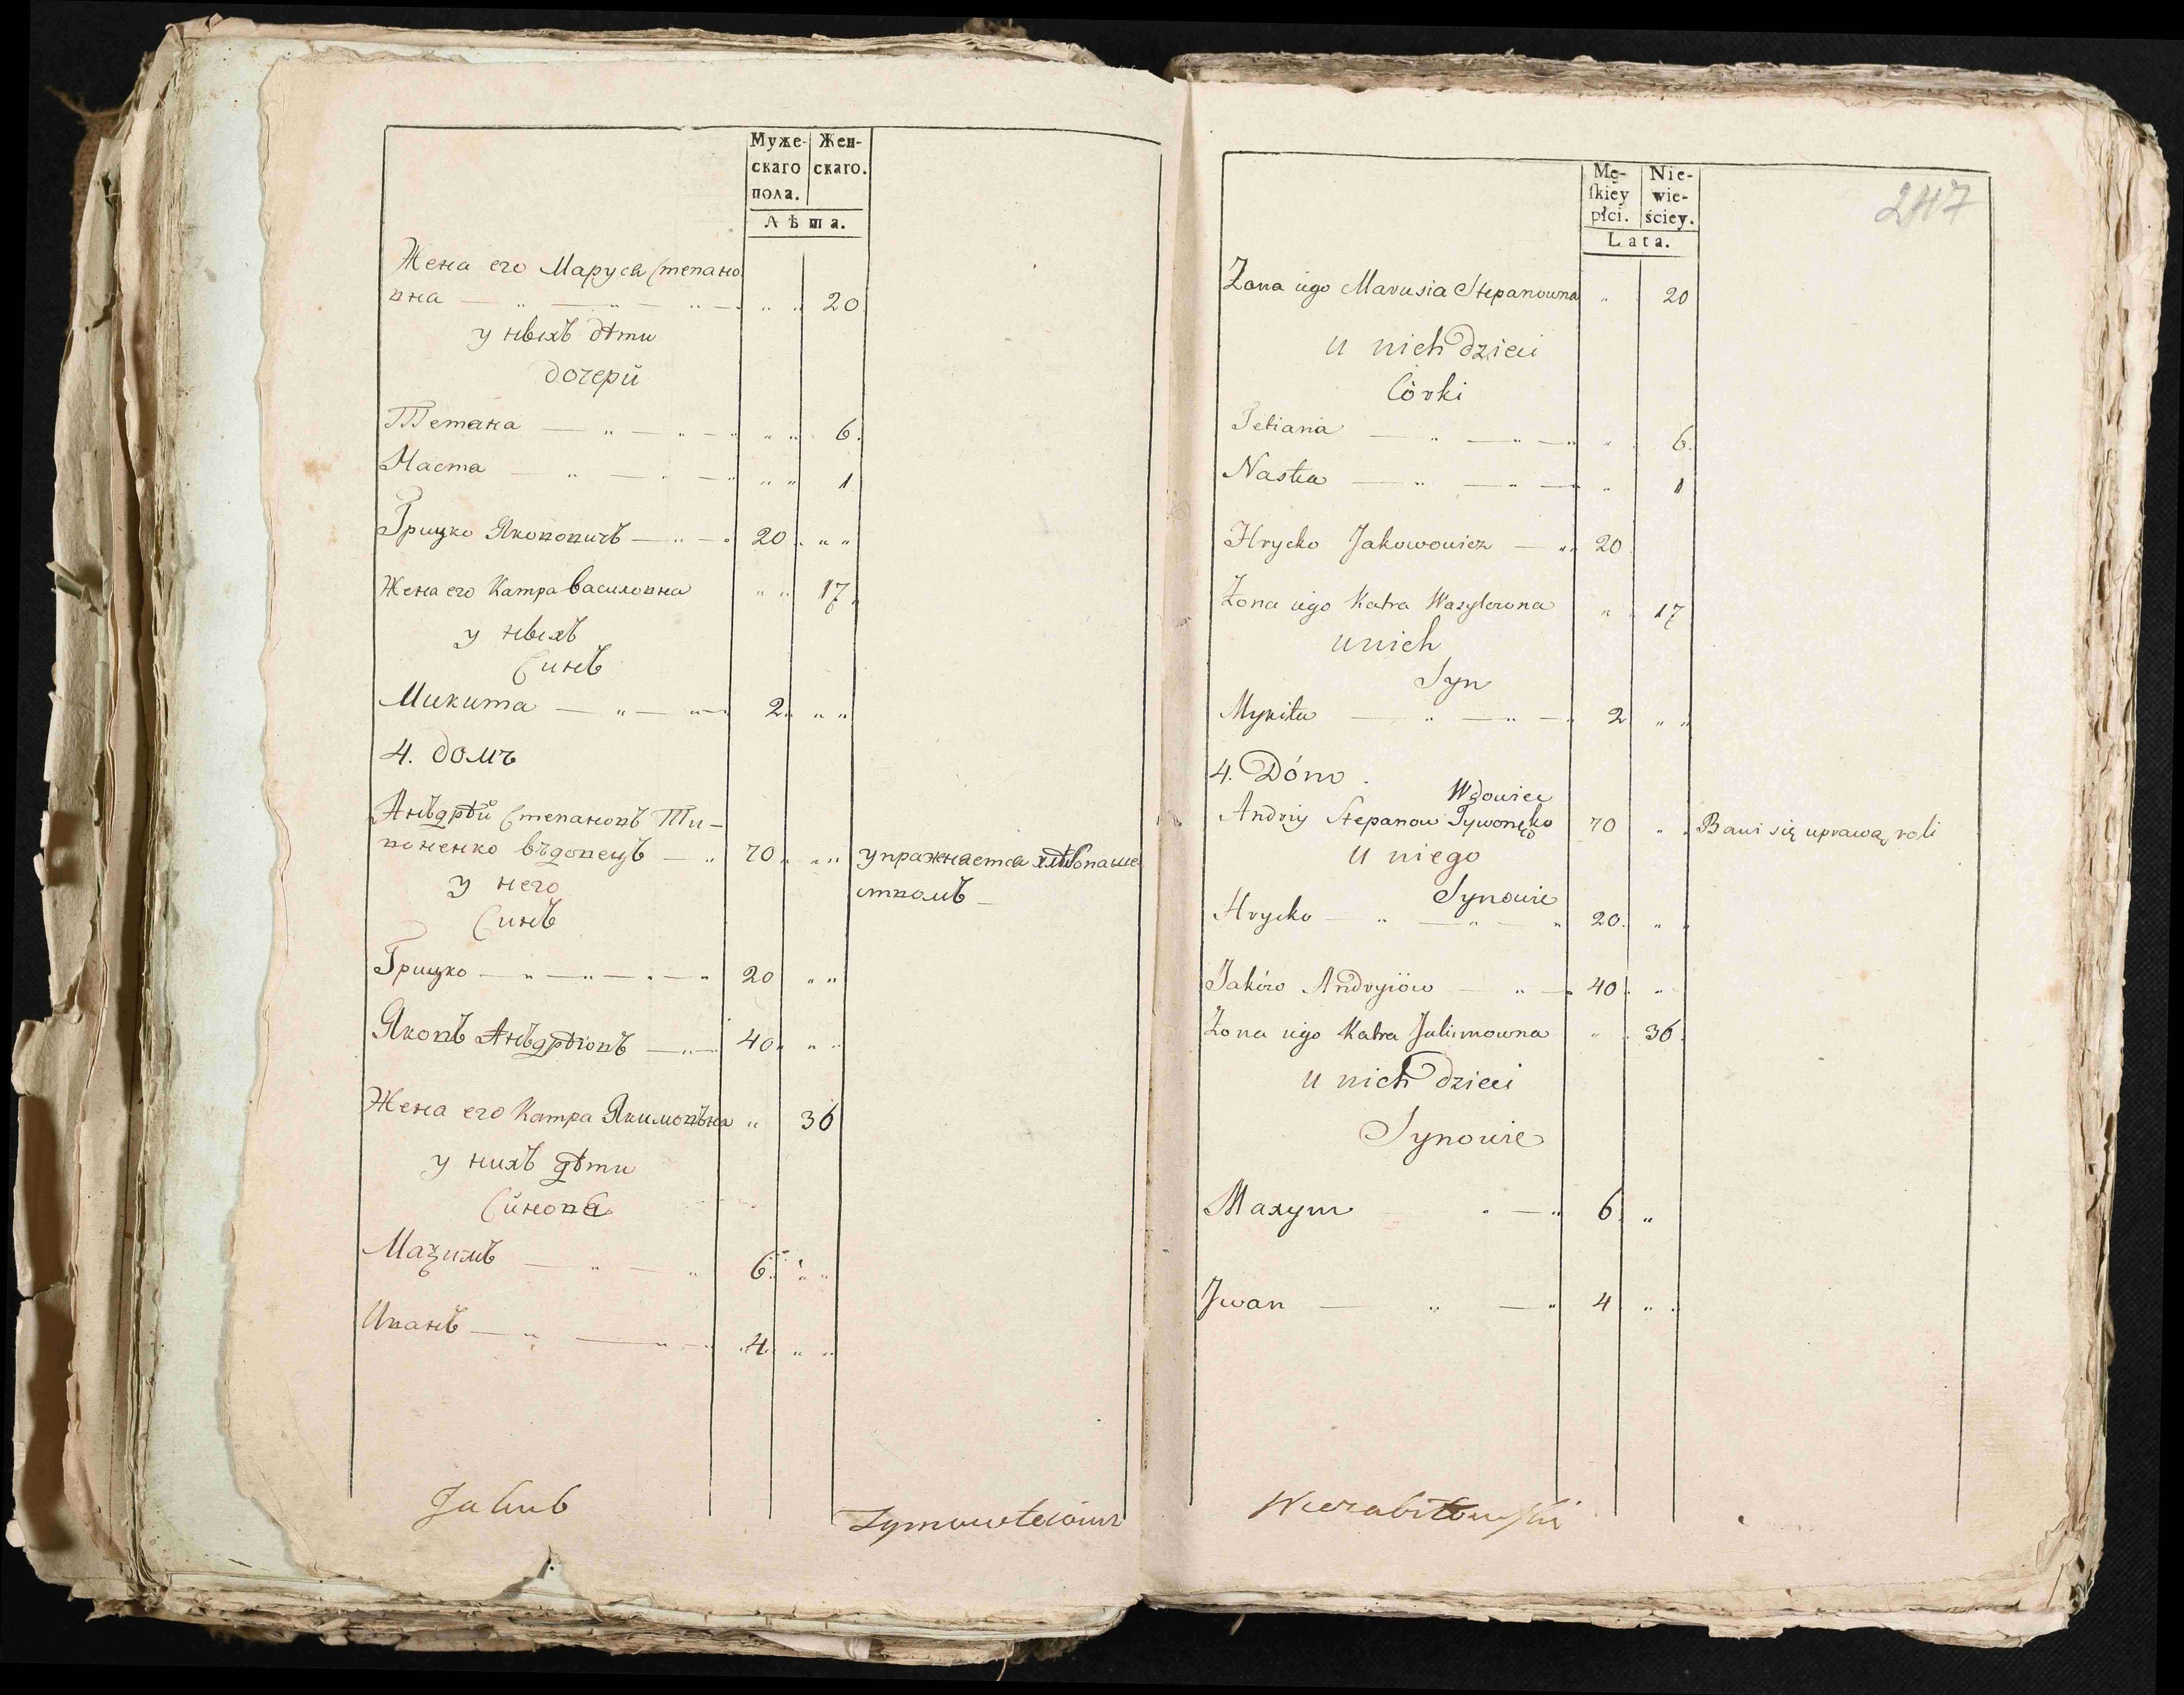 Муже-
скаго
пола.
Жен-
скаго.
Лѣта.
Жена его Маруся Степано
вна — „ — „ — „ — „ „ 20
у ныхъ дѣти
дочерй
Тетяна — „ — „ — „ „ „ 6.
Наста — „ — „ — „ „ „ 1
Грицко Яковович — „ — „ 20 „ „ „
Жена его Катра Василовна „ „ 17
у ныхъ
Синъ
Микита — „ — „ — 2 „ „ „
4. домъ
Анъдрѣй Степановъ Ти-
воненко въдовецъ — „ 70 „ „ „ упражняется хлѣбопаше
ствомъ —
у него
Синъ
Грицко — „ — „ — „ — „ 20 „ „
Яковъ Анъдрѣiовъ — „ — 40 „ „ „
Жена его Катра Якимовъна „ 36
у нихъ дѣти
Сйнова
Маѯимъ — „ — „ 6 „ „ „
Иванъ — „ — „ — „ 4 „ „ „
Jakub
Mę-
skiey
płci.
Nie-
wie-
ściey.
Lata.
247
Żona iego Marusia Stepanowna „ 20
u nich dzieci
Córki
Tetiana — „ — „ — „ „ 6.
Nastia — „ — „ — „ „ 1
Hrycko Jakowowicz — „ 20
Żona iego Katra Wasylowna „ 17
u nich
Syn
Mykita — „ — „ — „ 2 „ „
4. Dóm.
Wdowiec
Andriy Stepanow Tywonęko 70 „ „ Bawi się uprawą roli
U niego
Synowie
Hrycko — „ — „ — „ 20. „ „
Jaków Andryiów — „ — „ 40 „ „
Żona iego Katra Jakimowna „ 36.
u nich dzieci
Synowie
Maxym „ — „ 6 „
Jwan — „ — „ 4 „ „